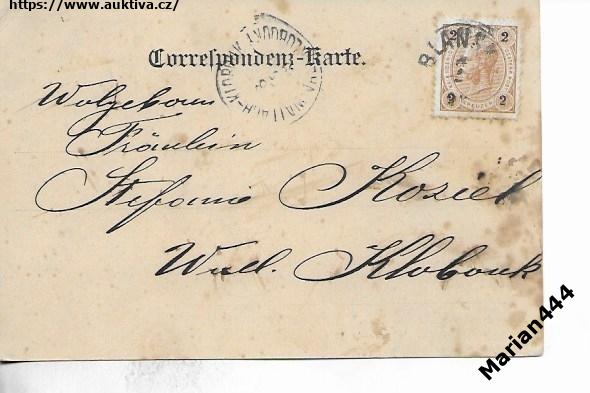 https://www.auktiva.cz/
Correspondenz-Karte.
2 2
2 2
BLAN
Wolgeborn
Fräulein
Stefanie Koziel
Wall. Klobouk
Marian444